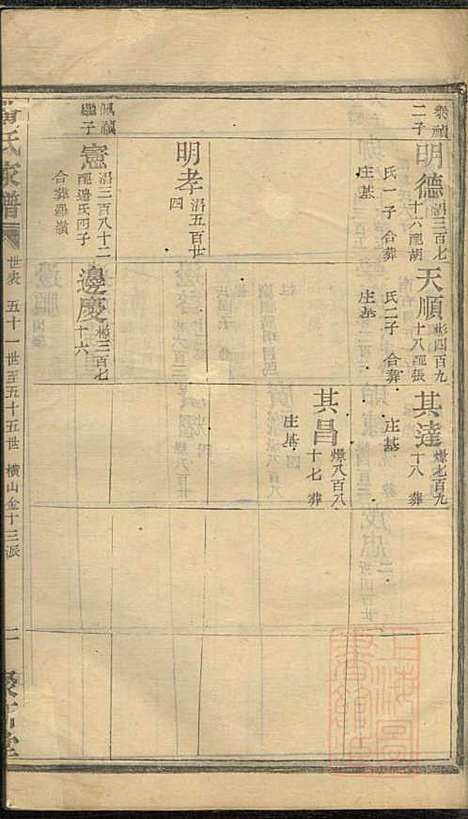 榮禎二子
明德 湝三百七十六 配胡氏 一子 合葬庄基
天順 彬四百九十八 配張氏 二子 合葬庄基
其達 爆七百九十八 葬庄基
其昌 爆八百八十七 葬庄基
明孝 湝五百廿四
禎繼子
憲 湝三百八十二 配邉氏 四子 合葬
邊慶 彬三百七十六
氏家譜
世表 五十一世至五十五世 橫山金十三派
上海圖書館藏